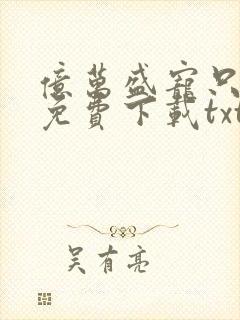 億萬盛寵只
免費下載txt
吴有亮